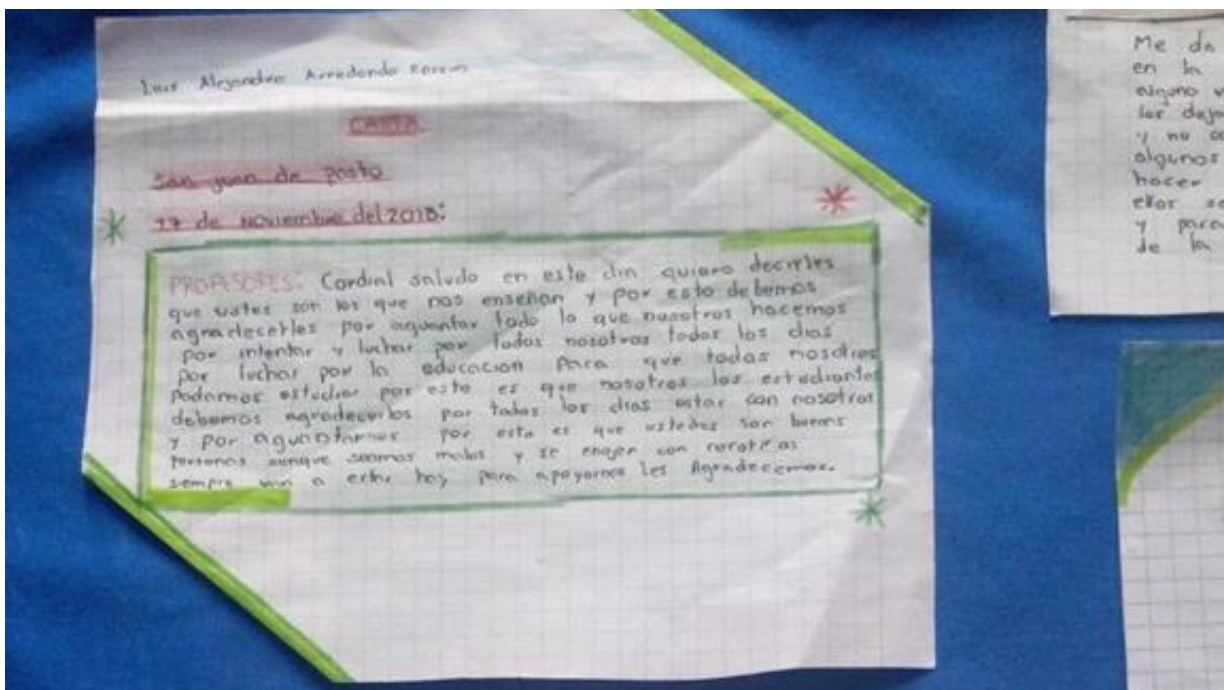 Luis Alejandro Arredondo
CARTA
San juan de pasto
17 de Noviembre del 2018:
PROFESORES: Cordial saludo en este dia quiero decirles
que son los que nos enseñan y por esto debemos
agradecerles por aguantar todo lo que nosotros hacemos
por intentar y luchar por todos nosotros todos los dias
por luchar por la educacion Para que todos nosotros
Podamos estudiar por esto es que nosotros los estudiantes
debemos agradecerlos por todos los dias estar con nosotros
y por aguantarnos por esto es que ustedes son buenas
personas aunque seamos malos y se enojen con nosotros
siempre van a estar hay para apoyarnos les Agradecemos.
Me da
en la
alguno
les
y no
algunos
hacer
ellos
y para
de la